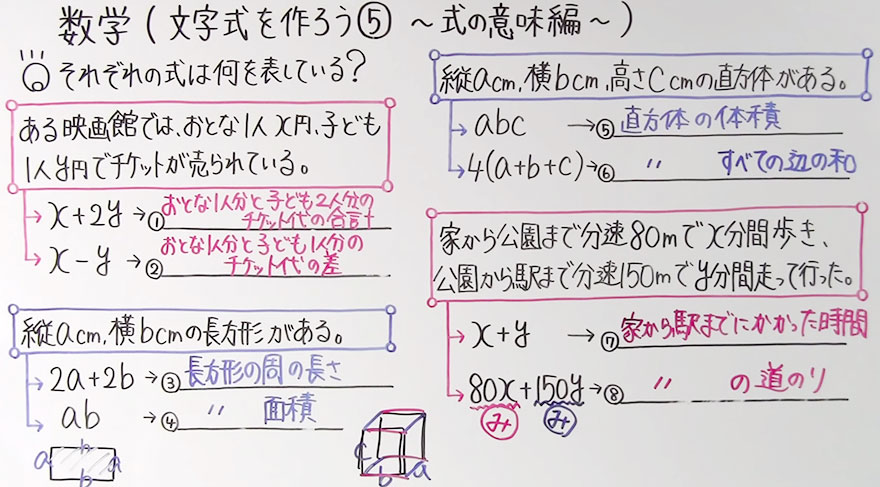 数学(文字式を作ろう⑤ ～式の意味編～)
それぞれの式は何を表している?
ある映画館では、おとな1人x円、子ども
1人y円でチケットが売られている。
x+2y→①おとな1人分と子ども2人分の
チケット代の合計
x-y→②おとな1人分と子ども1人分の
チケット代の差
縦acm,横bcmの長方形がある。
2a+2b→③長方形の周の長さ
ab→④〃 面積
b
a a
b
縦acm,横bcm,高さccmの直方体がある。
abc→⑤直方体の体積
4(a+b+c)→⑥〃 すべての辺の和
c
b
a
家から公園まで分速80mでx分間歩き、
公園から駅まで分速150mでy分間走って行った。
x+y→⑦家から駅までにかかった時間
80x+150y→⑧〃 の道のり
み み